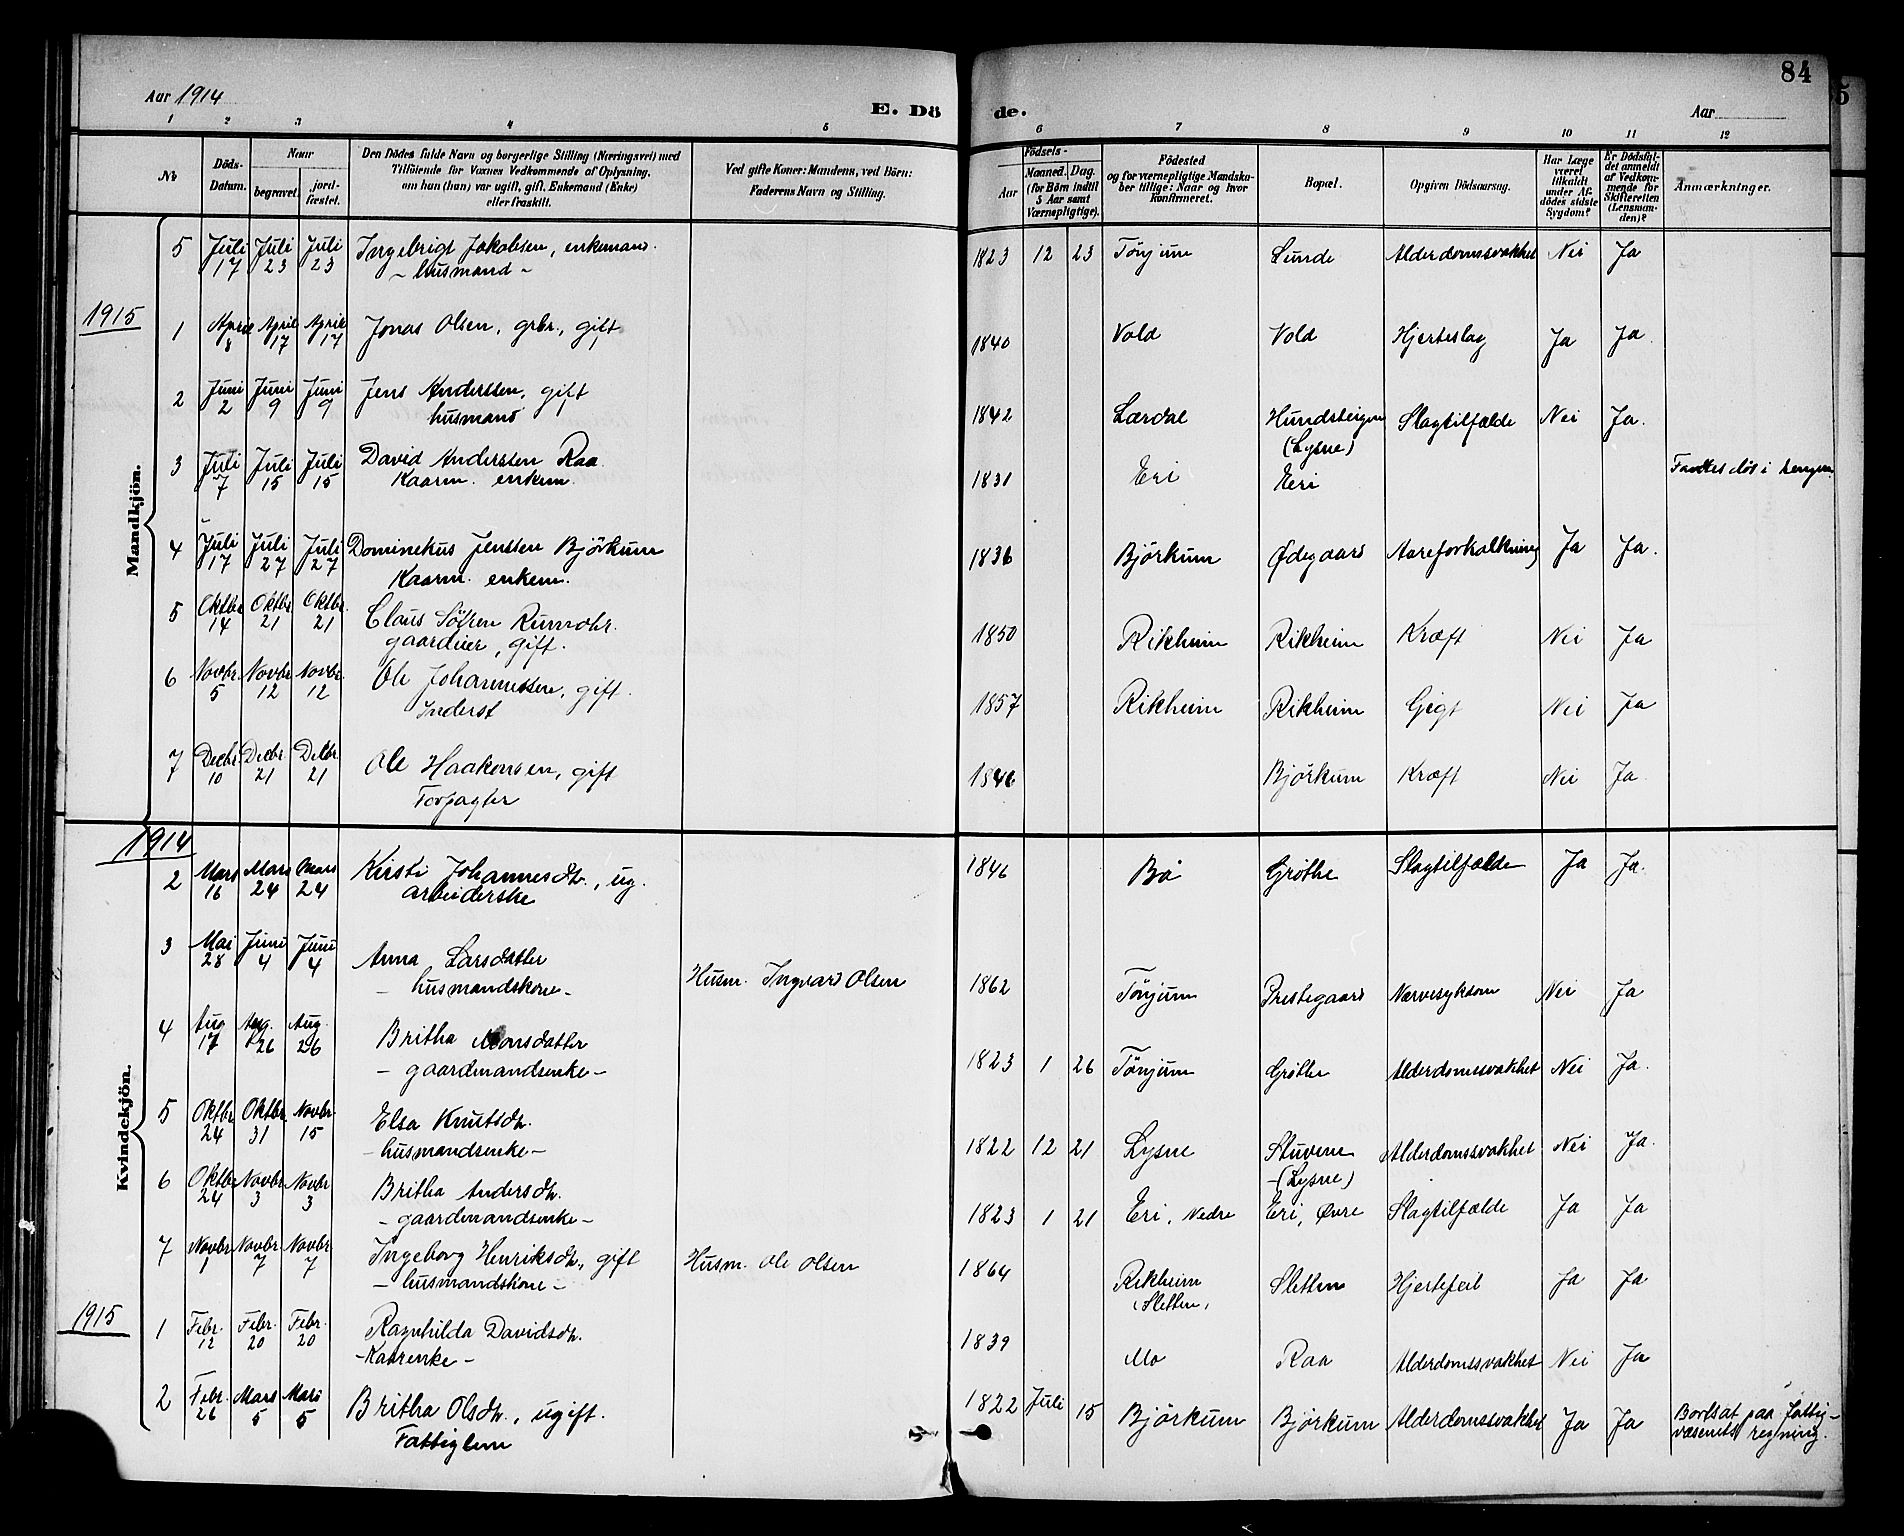 84
Aar 1914
E. Dö
de.
Aar
1 2 3 4 5 6 7 8 9 10 11 12
№
Döds-Datum.
Naar
begravet.
jord-fæstet.
Den Dödes fulde Navn og borgerlige Stilling (Næringsvei) med
Tilföiende for Voxnes Vedkommende af Oplysning,
om han (hun) var ugift, gift, Enkemand (Enke)
eller fraskilt.
Ved gifte Koner: Mandens, ved Börn:
Faderens Navn og Stilling.
Födsels-
Aar
Maaned.
Dag.
(for Börn indtil
5 Aar samt
Værnepligtige).
Födested
og for værnepligtige Mandska-
ber tillige: Naar og hvor
konfirmeret.
Bopæl.
Opgiven Dödsaarsag.
Har Læge
været
tilkaldt
under Af-
dödes sidste
Sygdom?
Er Dödsfal-
det anmeldt
af Vedkom-
mende for
Skifteretten
(Lensman-
den)?
Anmærkninger.
Mandkjön.
5 Juli 17 Juli 23 Juli 23 Ingebrigt Jakobsen, enkemand. 1823 12 23 Tönjum Lunde Alderdomssvakhet Nei Ja
- husmand -
1915
1 April 8 April 17 April 17 Jonas Olsen, grbr., gift 1840 Vold Vold Hjerteslag Ja Ja
2 Juni 2 Juni 9 Juni 9 Jens Anderssen, gift 1842 Lærdal Hundsteigen Slagtilfælde Nei Ja.
husmand (Lysne)
3 Juli 7 Juli 15 Juli 15 David Anderssen Raa 1831 Eri Eri Fandtes död i sengen
Kaarm. enkem.
4 Juli 17 Juli 27 Juli 27 Dominekus Jenssen Björkum 1836 Björkum Ødegaard Aareforkalkning Ja Ja.
Kaarm. enkem.
5 Oktbr 14 Oktbr 21 Oktbr. 21 Claus Sören Rumohr. 1850 Rikheim Rikheim Kræft Nei Ja
gaardeier, gift.
6 Novbr. 5 Novbr 12 Novbr. 12 Ole Johannessen, gift. 1857 Rikheim Rikheim Gigt Nei Ja
Inderst
7 Decbr. 10 Decbr. 21 Decbr. 21 Ole Haakonsen, gift 1846 Björkum Kræft Nei Ja
Forpagter
Kvindekjön.
1914
2 Mars 16 Mars 24 Mars 24 Kirsti Johannesdtr., ug. 1846 Bö Gröthe Slagtilfælde Ja Ja.
arbeiderske
3 Mai 28 Juni 4 Juni 4 Anna Larsdatter Husm. Ingvard Olsen 1862 Tönjum Prestegaard Nervesykdom Nei Ja
- husmandskone -
4 Aug 17 Aug. 26 Aug. 26 Britha Monsdatter 1823 1 26 Tönjum Gröthe Alderdomssvakhet Nei Ja.
- gaardmandsenke -
5 Oktbr 24 Oktbr. 31 Novbr. 15 Elsa Knutsdtr. 1822 12 21 Lysne Stuvene Alderdomssvakhet Nei Ja.
- husmandsenke - (Lysne)
6 Oktbr 24 Novbr 3 Novbr 3 Britha Andersdtr. 1823 1 21 Eri, Nedre Eri, Øvre Slagtilfælde Ja Ja
- gaardmandsenke -
7 Novbr 1 Novbr. 7 Novbr 7 Ingeborg Henriksdtr., gift Husm. Ole Olsen 1864 Rikheim Sletten Hjertefeil Ja Ja
- husmandskone - (Sletten)
1915
1 Febr. 12 Febr. 20 Febr. 20 Ragnhilda Davidsdtr. 1839 Mo Raa Alderdomssvakhet Nei Ja
- Kaarenke -
2 Febr. 26 Mars 5 Mars 5 Britha Olsdtr., ugift. 1822 Juli 15 Björkum Björkum Alderdomssvakhet Ja Ja Bortsat paa fattig-
Fattiglem væsenets regning.